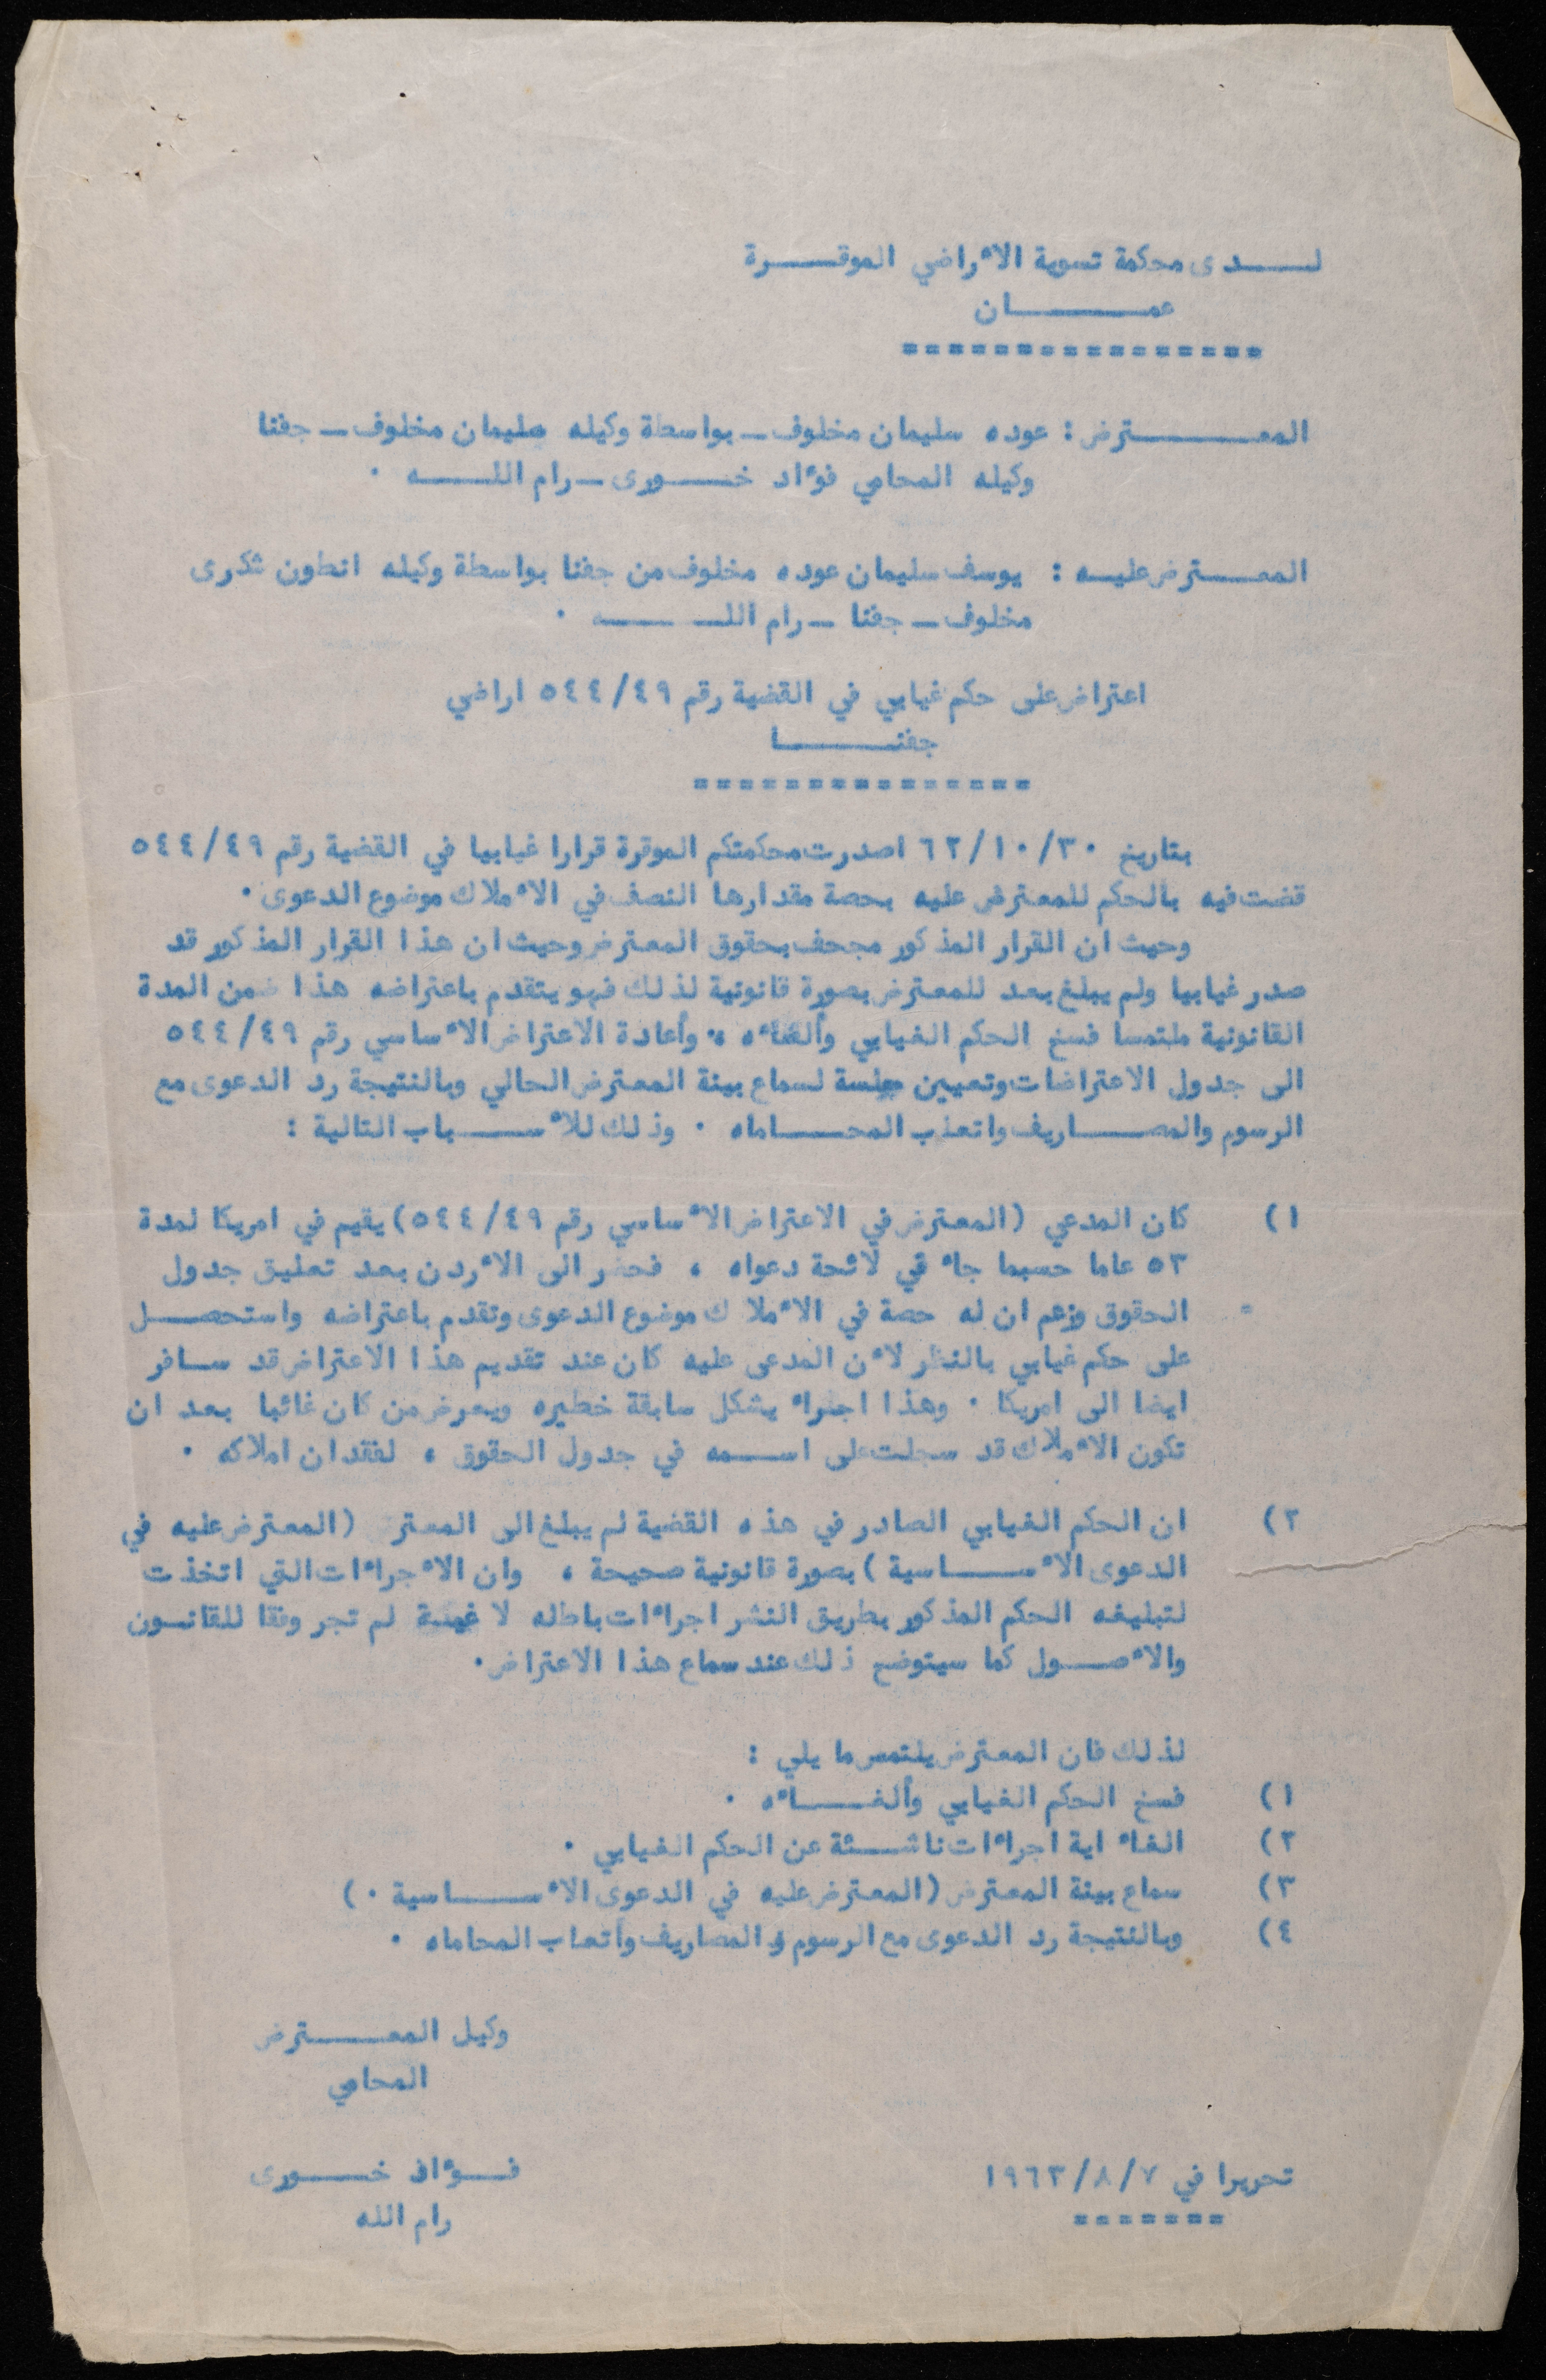 لــــدى محكمة تسوية الأراضي الموقــــرة
عمـــــــان
================
المعـــــــترض : عوده سليمان مخلوف ــ بواسطة وكيله سليمان مخلوف ــ جفنا
وكيله المحامي فؤاد خـــورى ــ رام اللـــــه ٠
المعــــترض عليــه : يوسف سليمان عوده مخلوف من جفنا بواسطة وكيله انطون شكرى
مخلوف ــ جفنا ــ رام اللــــــه ٠
اعتراض على حكم غيابي في القضية رقم ٥٤٤/٤٩ اراضي
جفنـــــــا
===============
بتاريخ ٦٢/١٠/٣٠ اصدرت محكمتكم الموقرة قرارا غيابيا في القضية رقم ٥٤٤/٤٩
قضت فيه بالحكم للمعترض عليه بحصة مقدارها النصف في الأملاك موضوع الدعوى ٠
وحيث ان القرار المذكور مجحف بحقوق المعترض وحيث ان هذا القرار المذكور قد
صدر غيابيا ولم يبلغ بعد للمعترض بصورة قانونية لذلك فهو يتقدم باعتراضه هذا ضمن المدة
القانونية ملتمسا فسخ الحكم الغيابي وألغائه ، وأعادة الاعتراض الأساسي رقم ٥٤٤/٤٩
الى جدول الاعتراضات وتعيين جلسة لسماع بينة المعترض الحالي وبالنتيجة رد الدعوى مع
الرسوم والمصــــاريف واتعاب المحـــاماه ٠ وذلك للأســـــباب التالية :
١) كان المدعي (المعترض في الاعتراض الأساسي رقم ٥٤٤/٤٩) يقيم في امريكا لمدة
٥٣ عاما حسبما جاء في لائحة دعواه ، فحضر الى الأردن بعد تعليق جدول
= الحقوق وزعم ان له حصة في الأملاك موضوع الدعوى وتقدم باعتراضه واستحصــل
على حكم غيابي بالنظر لأن المدعى عليه كان عند تقديم هذا الاعتراض قد ســافر
ايضا الى امريكا ٠ وهذا اجراء يشكل سابقة خطيره ويعرض من كان غائبا بعد ان
تكون الأملاك قد سجلت على اســمه في جدول الحقوق ، لفقدان املاكه ٠
٢) ان الحكم الغيابي الصادر في هذه القضية لم يبلغ الى المعتر (المعترض عليه في
الدعوى الأســــاسية ) بصورة قانونية صحيحة ، وان الأجراءات التي اتخذت
لتبليغه الحكم المذكور بطريق النشر اجراءات باطله لا غية لم تجر وفقا للقانــون
والأصــــول كما سيتوضح ذلك عند سماع هذا الاعتراض ٠
لذلك فان المعترض يلتمس ما يلي :
١) فسخ الحكم الغيابي وألغـــــائه ٠
٢) الغاء اية اجراءات ناشـــئة عن الحكم الغيابي ٠
٣) سماع بينة المعترض (المعترض عليه في الدعوى الأســـــاسية ٠)
٤) وبالنتيجة رد الدعوى مع الرسوم و المصاريف وأتعاب المحاماه ٠
وكيل المعــــــترض
المحامي
تحريرا في ١٩٦٣/٨/٧ فـــؤاد خــــورى
======= رام الله